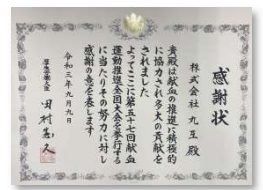 感謝状
株式会社 丸互殿
貴殿は献血の推進に積極的
に協力され多大の貢献を
されました
よってここに第五十七回献血
運動推進全国大会を挙行する
に当たりその努力に対し
感謝の意を表します
令和三年九月九日
厚生労働大臣 田村憲久